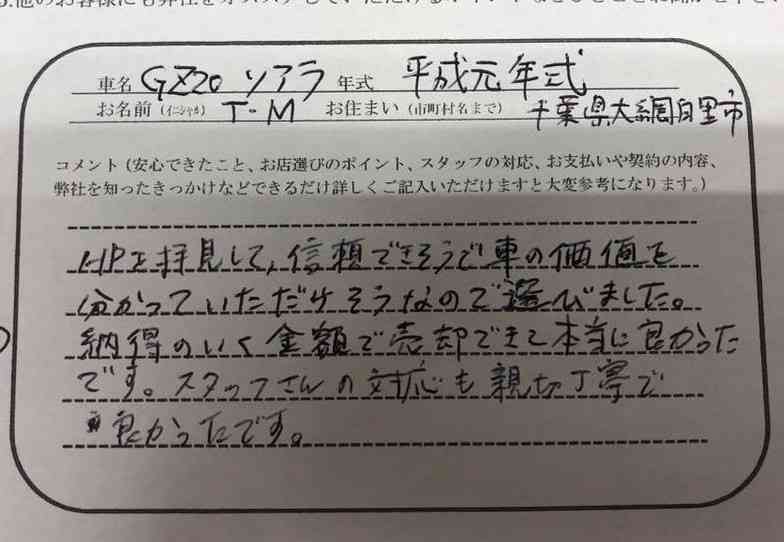 車名 GZ20 ソアラ 年式 平成元年式
お名前（イニシャル） T・M お住まい（市町村名まで） 千葉県大網白里市
コメント（安心できたこと、お店選びのポイント、スタッフの対応、お支払いや契約の内容、
弊社を知ったきっかけなどできるだけ詳しくご記入いただけますと大変参考になります。）
HPを拝見して、信頼できそうで車の価値を
分かっていただけそうなので選びました。
納得のいく金額で売却できて本当に良かった
です。スタッフさんの対応も親切丁寧で
良かったです。